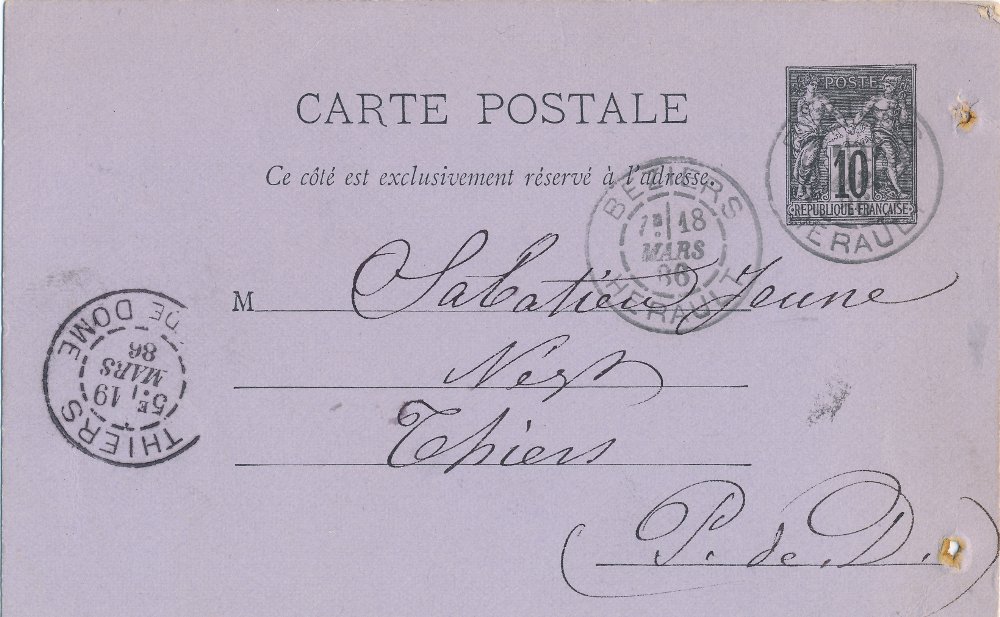 CARTE POSTALE
Ce côté est exclusivement réservé à l'adresse.
POSTE
10
RÉPUBLIQUE FRANÇAISE
HERAULT
BEZIERS
18
MARS
86
HERAULT
M Sabatier Jeune
Négt
Thiers
P. de D.
THIERS
5E 19
MARS
86
DE DOME